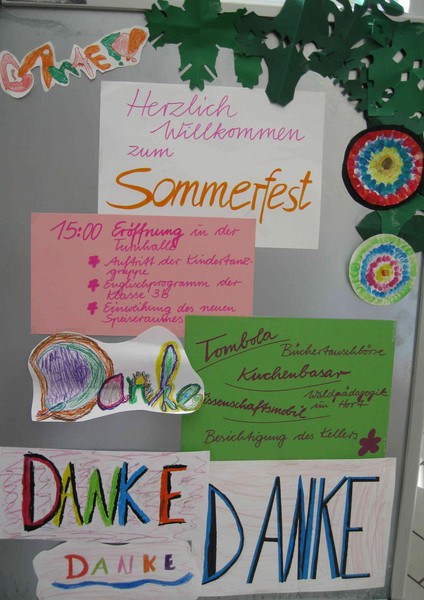 DANKE!!
Herzlich
Willkommen
zum
Sommerfest
15:00 Eröffnung in der
Turnhalle
Auftritt der Kindertanz-
gruppe
Englischprogramm der
Klasse 3B
Einweihung des neuen
Speiseraumes
Tombola
Büchertauschbörse
Kuchenbasar
Wissenschaftsmobil
Waldpädagogik
im Hort
Besichtigung des Kellers
Danke
DANKE
DANKE
DANKE